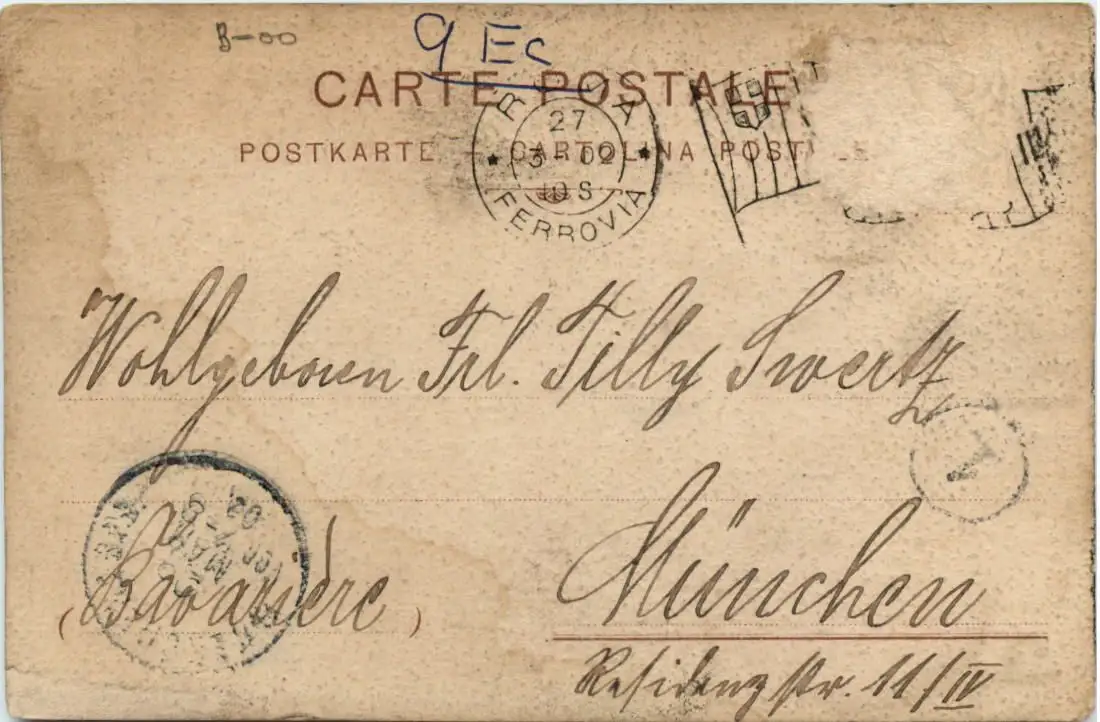 B-00
9 Ec
CARTE POSTALE
POSTKARTE — CARTOLINA POSTALE
27
3-02
10 S
FERROVIA
Wohlgeboren Frl. Tilly Swertz
1
(Bavarière)
München
Residenzstr. 11/IV